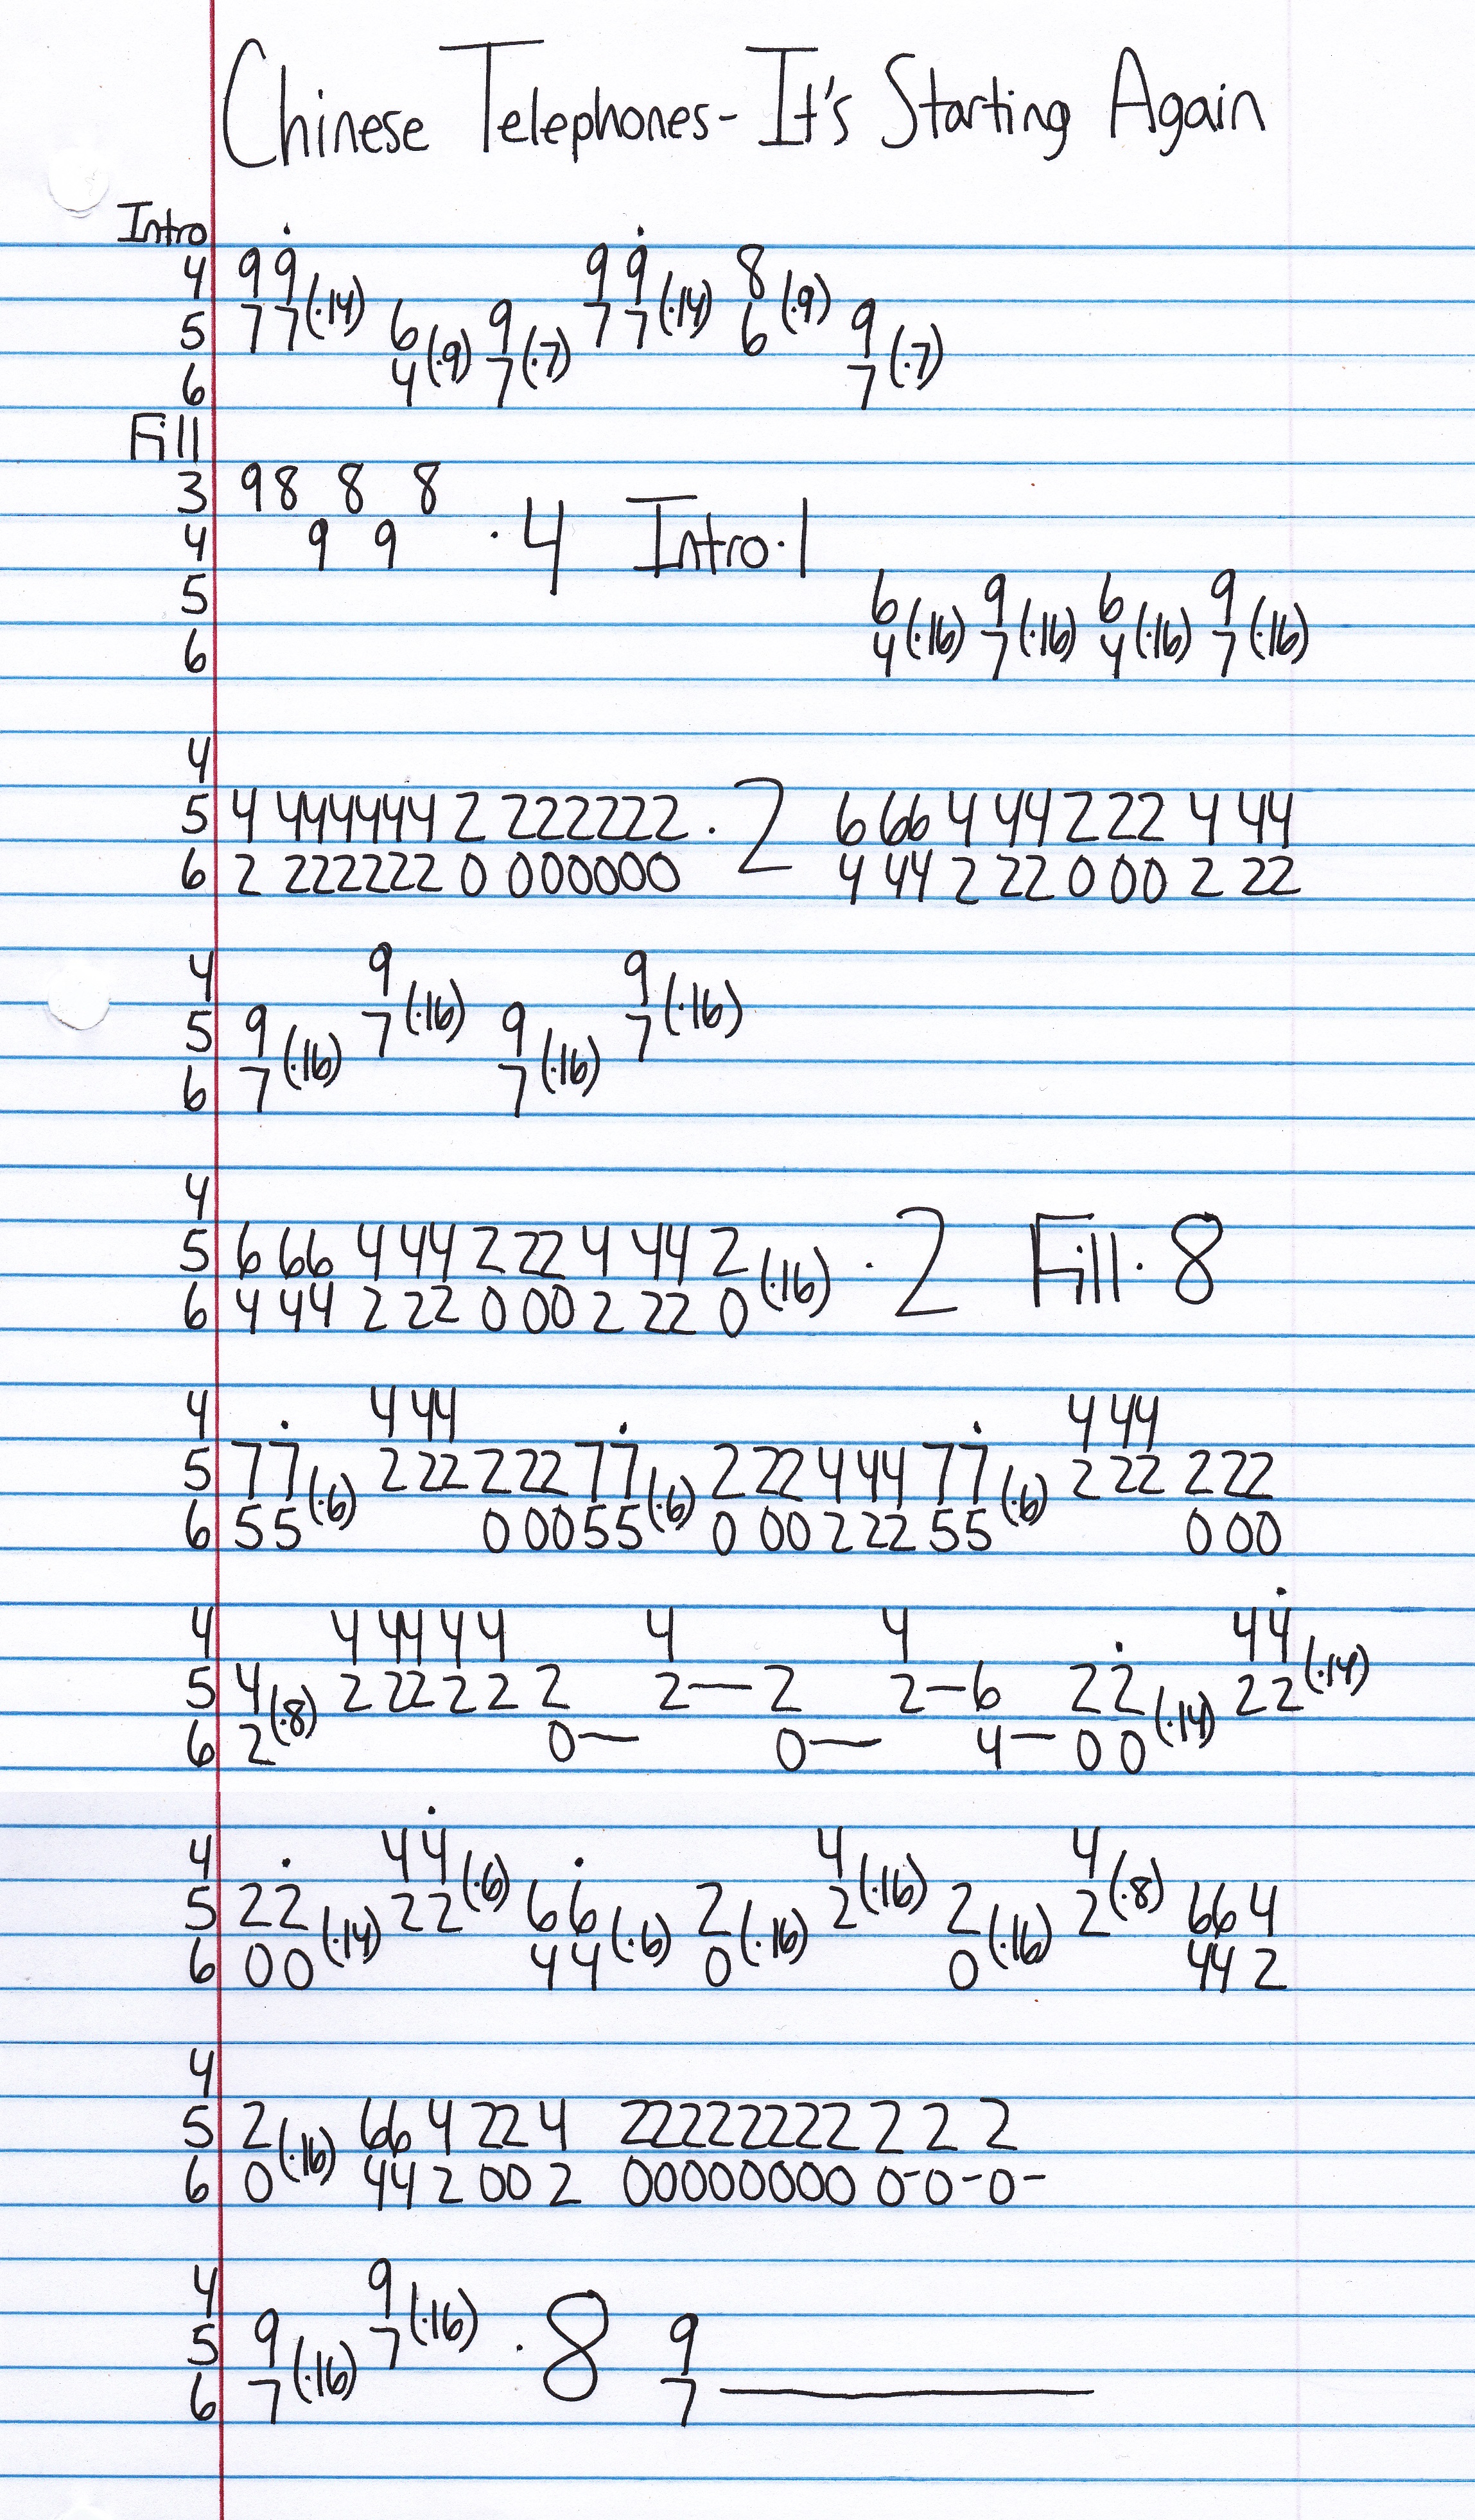 Chinese Telephones - It's Starting Again
Intro
4 9 9̇ 9 9̇ 8
5 7 7 (·14) 6 9 7 7 (·14) 6 (·9) 9
6 4 (·9) 7 (·7) 7 (·7)
Fill
3 9 8 8 8
4 9 9 · 4 Intro · 1
5 6 9 6 9
6 4 (·16) 7 (·16) 4 (·16) 7 (·16)
4
5 4 444444 2 222222 · 2 6 66 4 44 2 22 4 44
6 2 222222 0 000000 4 44 2 22 0 00 2 22
4 9 9
5 9 7 (·16) 9 7 (·16)
6 7 (·16) 7 (·16)
4
5 6 66 4 44 2 22 4 44 2 · 2 Fill · 8
6 4 44 2 22 0 00 2 22 0 (·16)
4 4 44 4 44
5 7 7̇ 2 22 2 22 7 7̇ 2 22 4 44 7 7̇ 2 22 2 22
6 5 5 (·6) 0 00 5 5 (·6) 0 00 2 22 5 5 (·6) 0 00
4 4 44 4 4 4 4 4 4̇
5 4 2 22 2 2 2 2 — 2 2 — 6 2 2̇ 2 2 (·14)
6 2 (·8) 0 — 0 — 4 — 0 0 (·14)
4 4 4̇ 4 4
5 2 2̇ 2 2 (·6) 6 6̇ 2 2 (·16) 2 2 (·8) 66 4
6 0 0 (·14) 4 4 (·6) 0 (·16) 0 (·16) 44 2
4
5 2 66 4 22 4 22222222 2 2 2
6 0 (·16) 44 2 00 2 00000000 0-0-0-
4 9
5 9 7 (·16) · 8 9
6 7 (·16) 7 ———